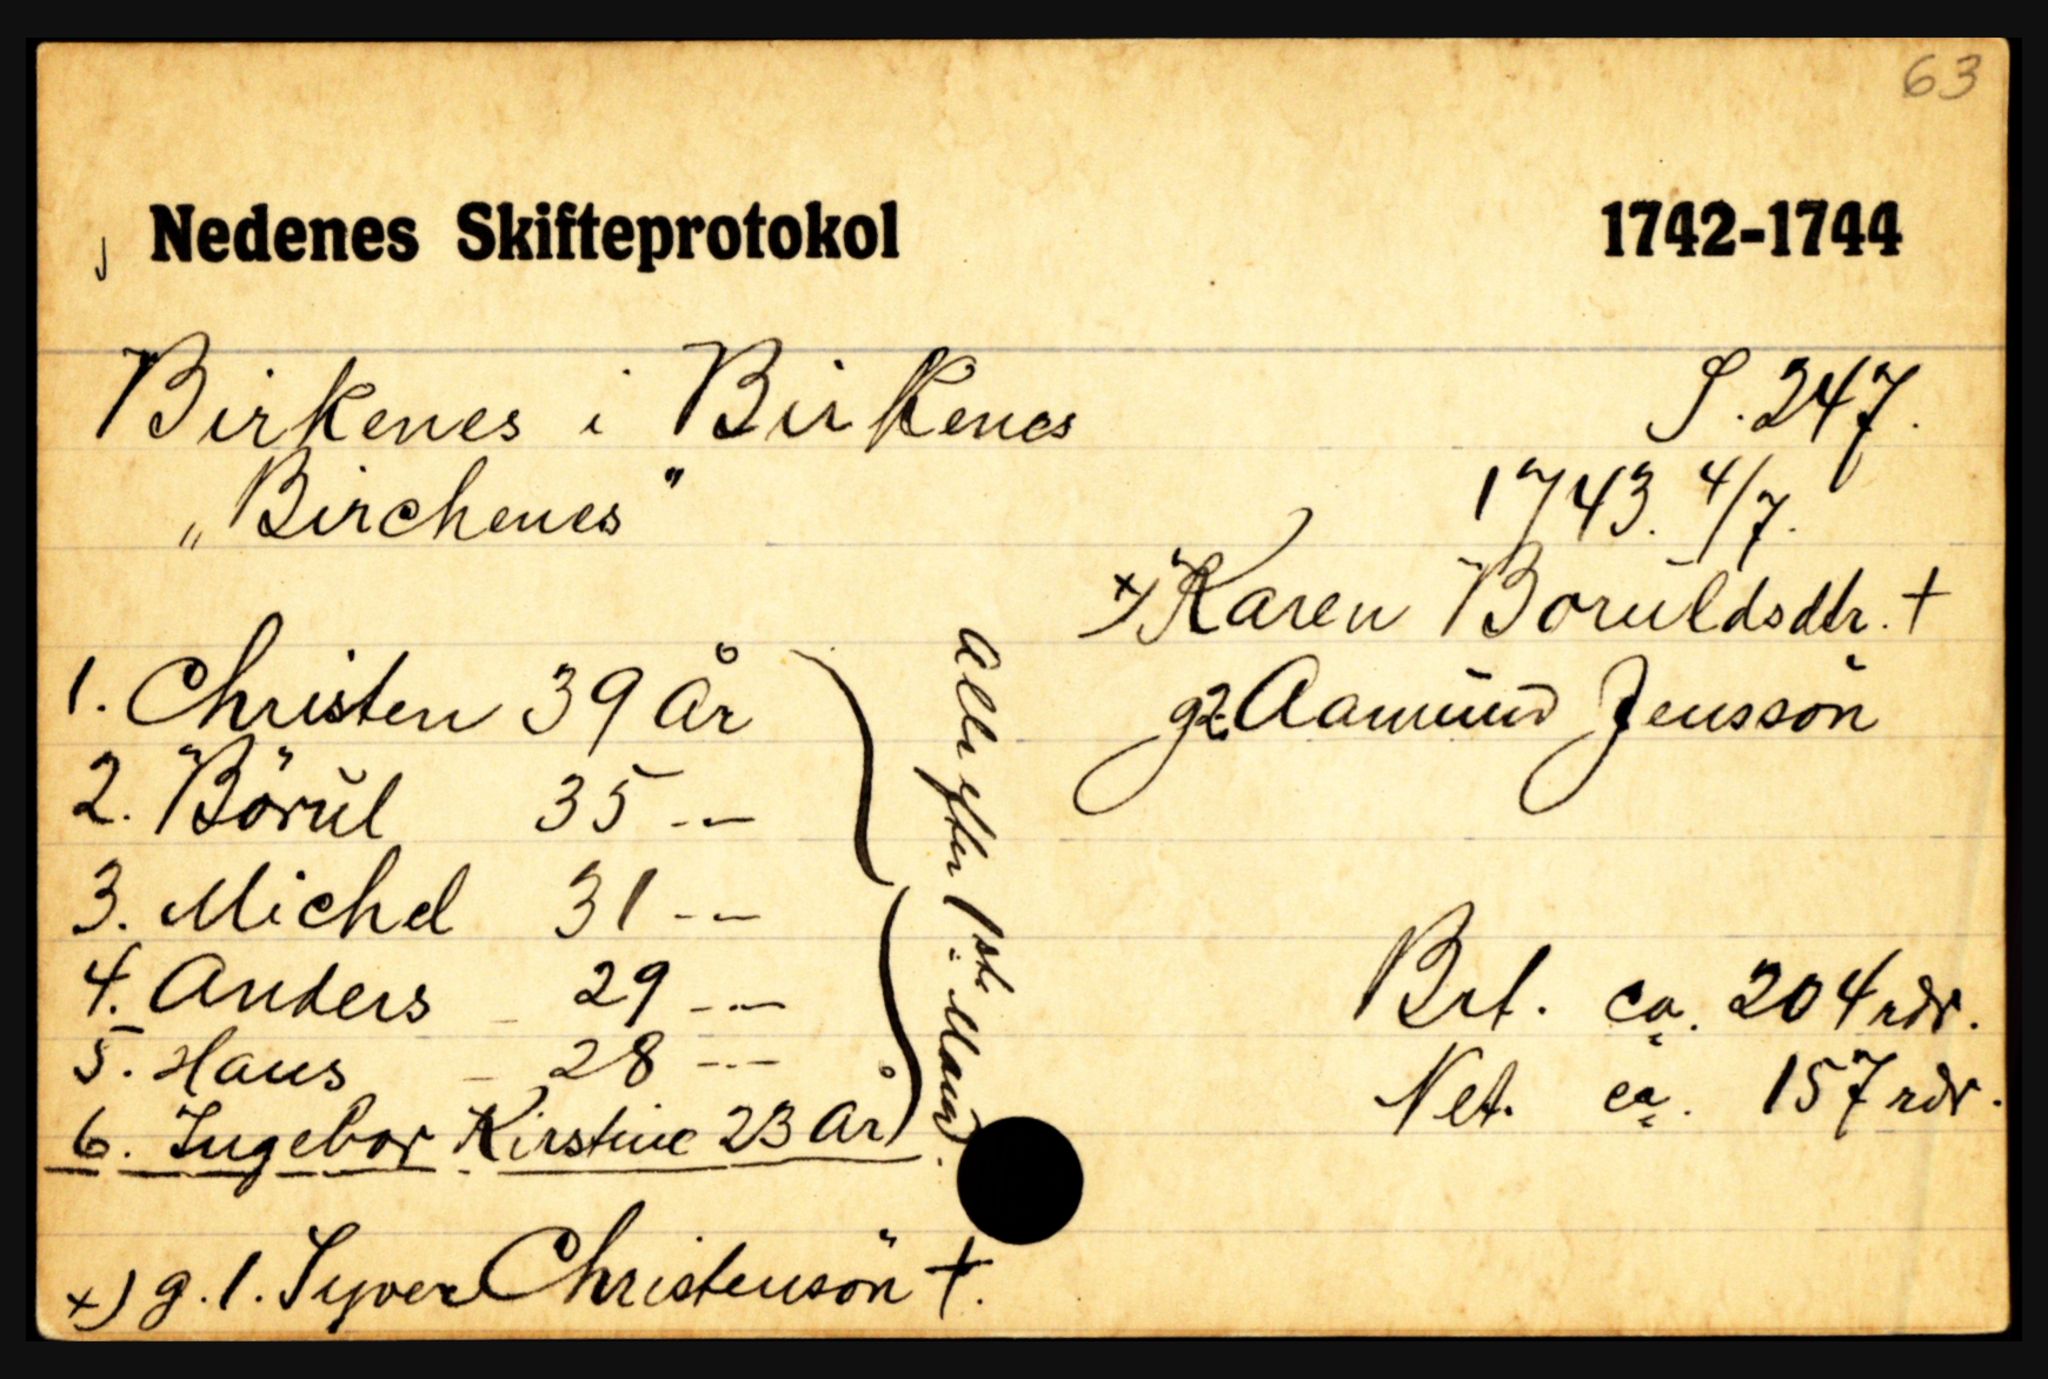 63
Nedenes Skifteprotokol 1742-1744
Birkenes i Birkenes S. 247.
„Birchenes" 1743. 4/7.
x) Karen Boruldsdtr. +
g2. Aamund Jenssön
1. Christen 39 år
2. Börul 35 -.-
3. Michel 31 -.-
4. Anders 29 -.-
5. Hans - 28 -.-
6. Ingebor Kirstine 23 år
Alle efter 1ste Mand.
Brt. ca. 204 rdr.
Net. ca. 157 rdr.
x) g. 1. Syver Christensön +.